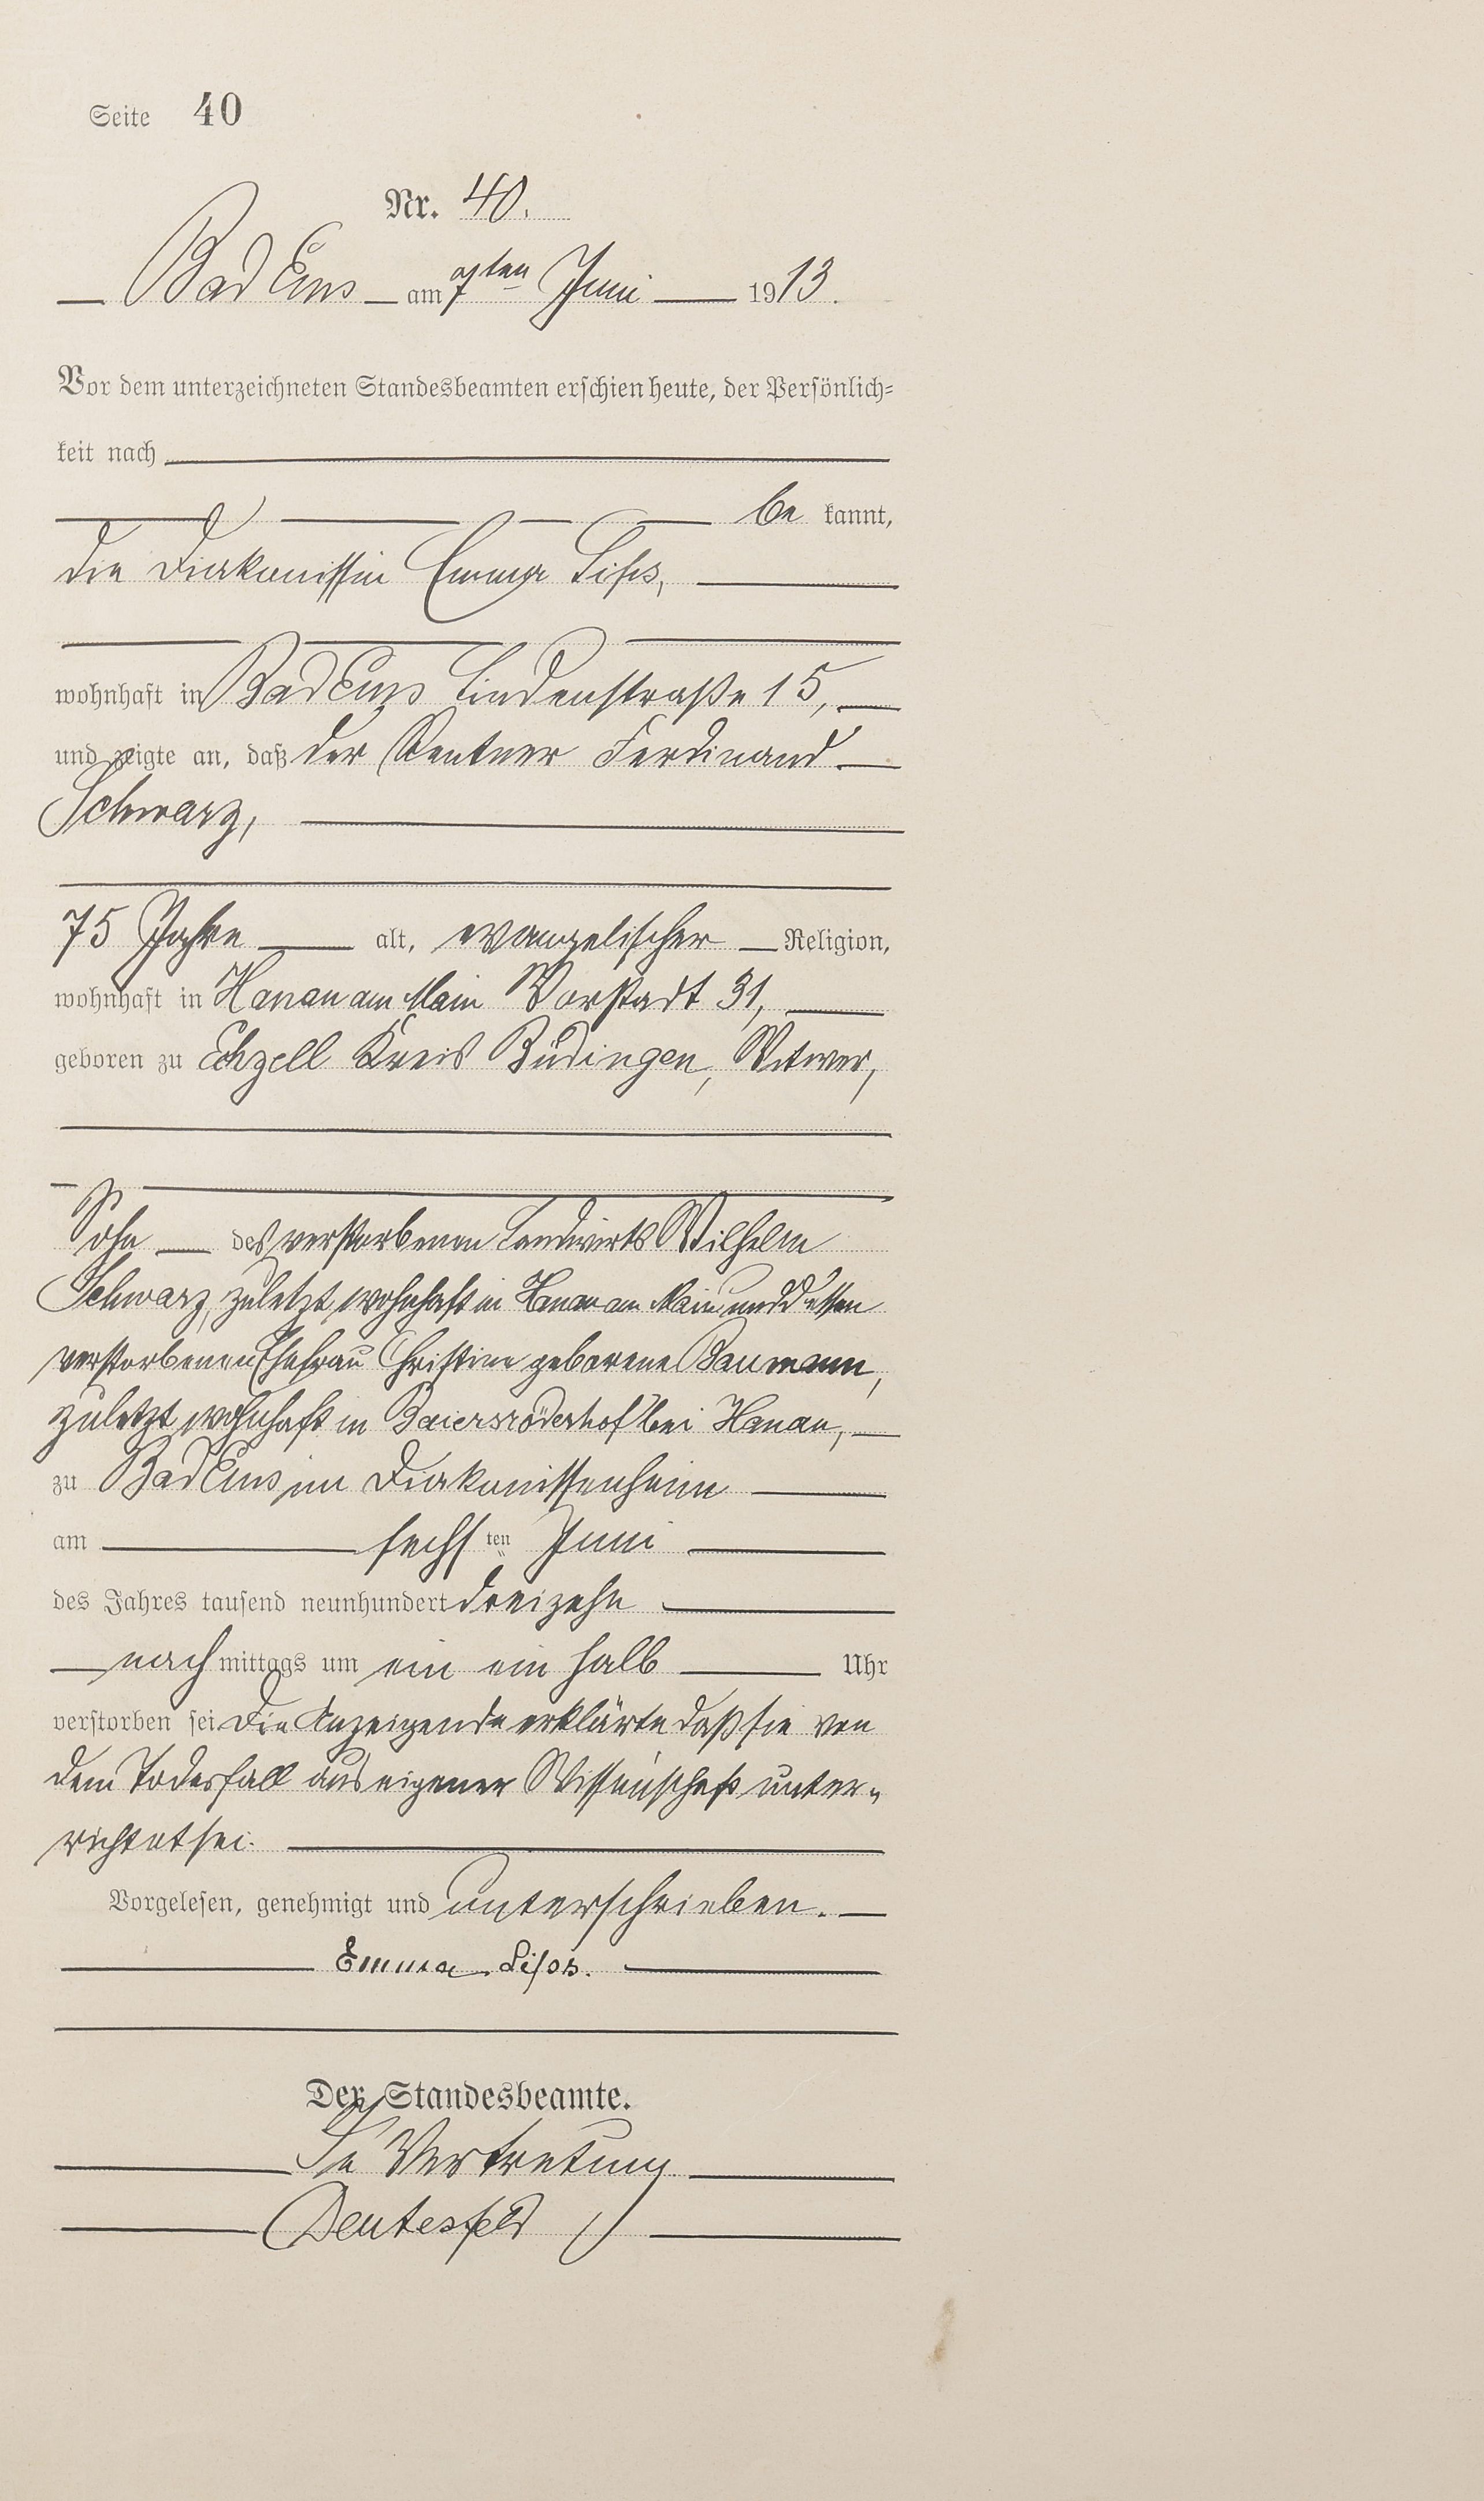 Seite 40
Nr. 40.
Bad Ems am 7ten Juni 1913.
Vor dem unterzeichneten Standesbeamten erschien heute, der Persönlich=
keit nach
be kannt,
die Diakonissin Emma Lips,
wohnhaft in Bad Ems Lindenstraße 15,
und zeigte an, daß der Rentner Ferdinand
Schwarz,
75 Jahre alt, evangelischer Religion,
wohnhaft in Hanau am Main Vorstadt 31,
geboren zu Echzell Kreis Büdingen, Witwer,
Sohn des verstorbenen Landwirts Wilhelm
Schwarz, zuletzt wohnhaft in Hanau am Main und dessen
verstorbenen Ehefrau Christine geborene Baumann,
zuletzt wohnhaft in Baiersröderhof bei Hanau,
zu Bad Ems im Diakonissenheim
am sechsten Juni
des Jahres tausend neunhundert dreizehn
nachmittags um ein ein halb Uhr
verstorben sei Die Anzeigende erklärte daß sie von
dem Todesfall aus eigener Wissenschaft unter=
richtet sei.
Vorgelesen, genehmigt und unterschrieben.
Emma Lips.
Der Standesbeamte.
In Vertretung